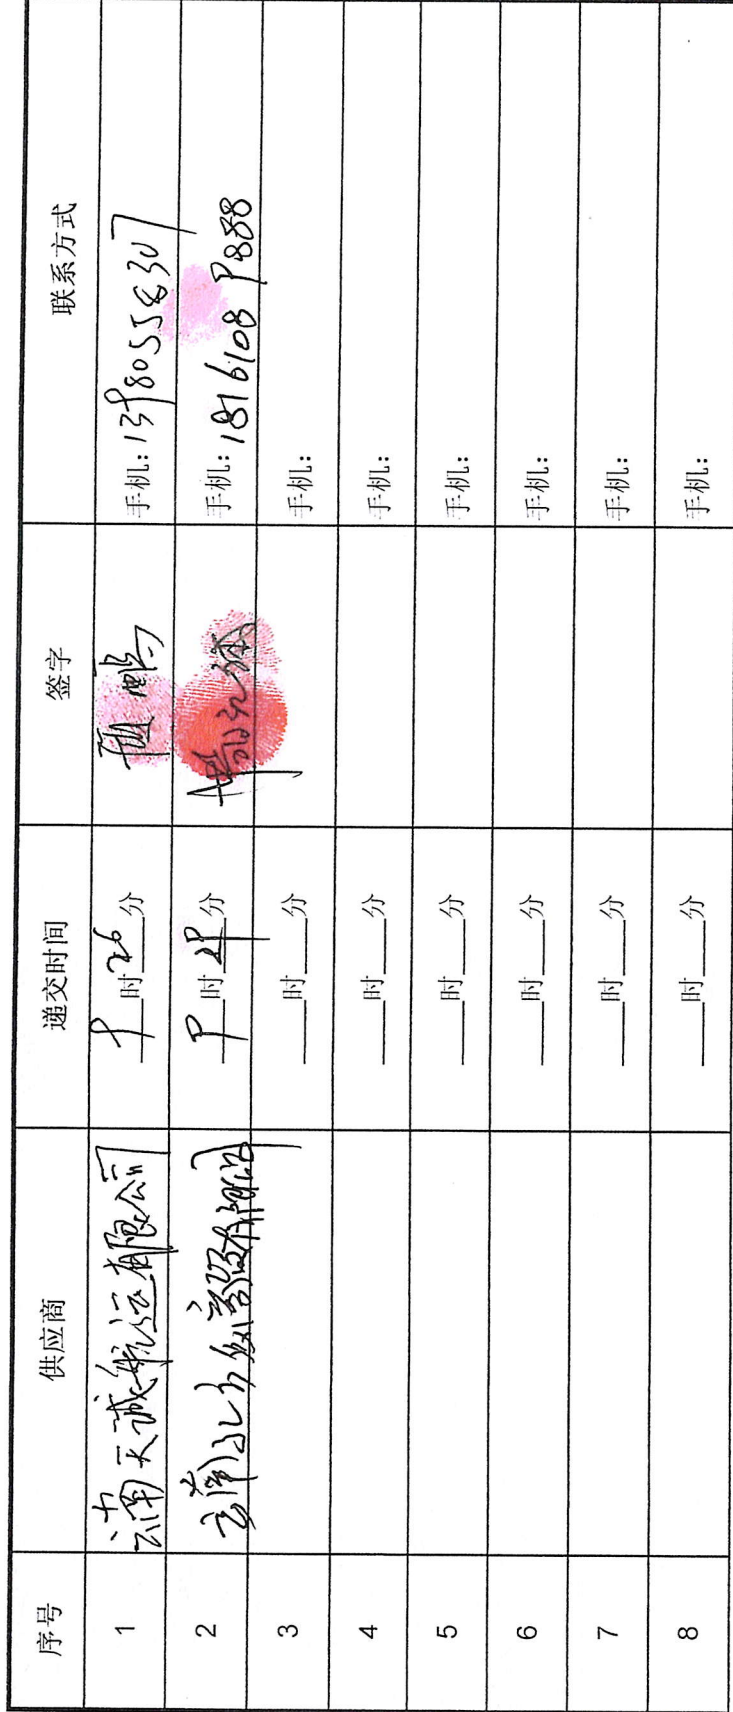 序号 供应商 递交时间 签字 联系方式
1 天诚航运有限公司 9时26分 手机：13980558307
2 9时29分 手机：18161089888
3 时 分 手机：
4 时 分 手机：
5 时 分 手机：
6 时 分 手机：
7 时 分 手机：
8 时 分 手机：